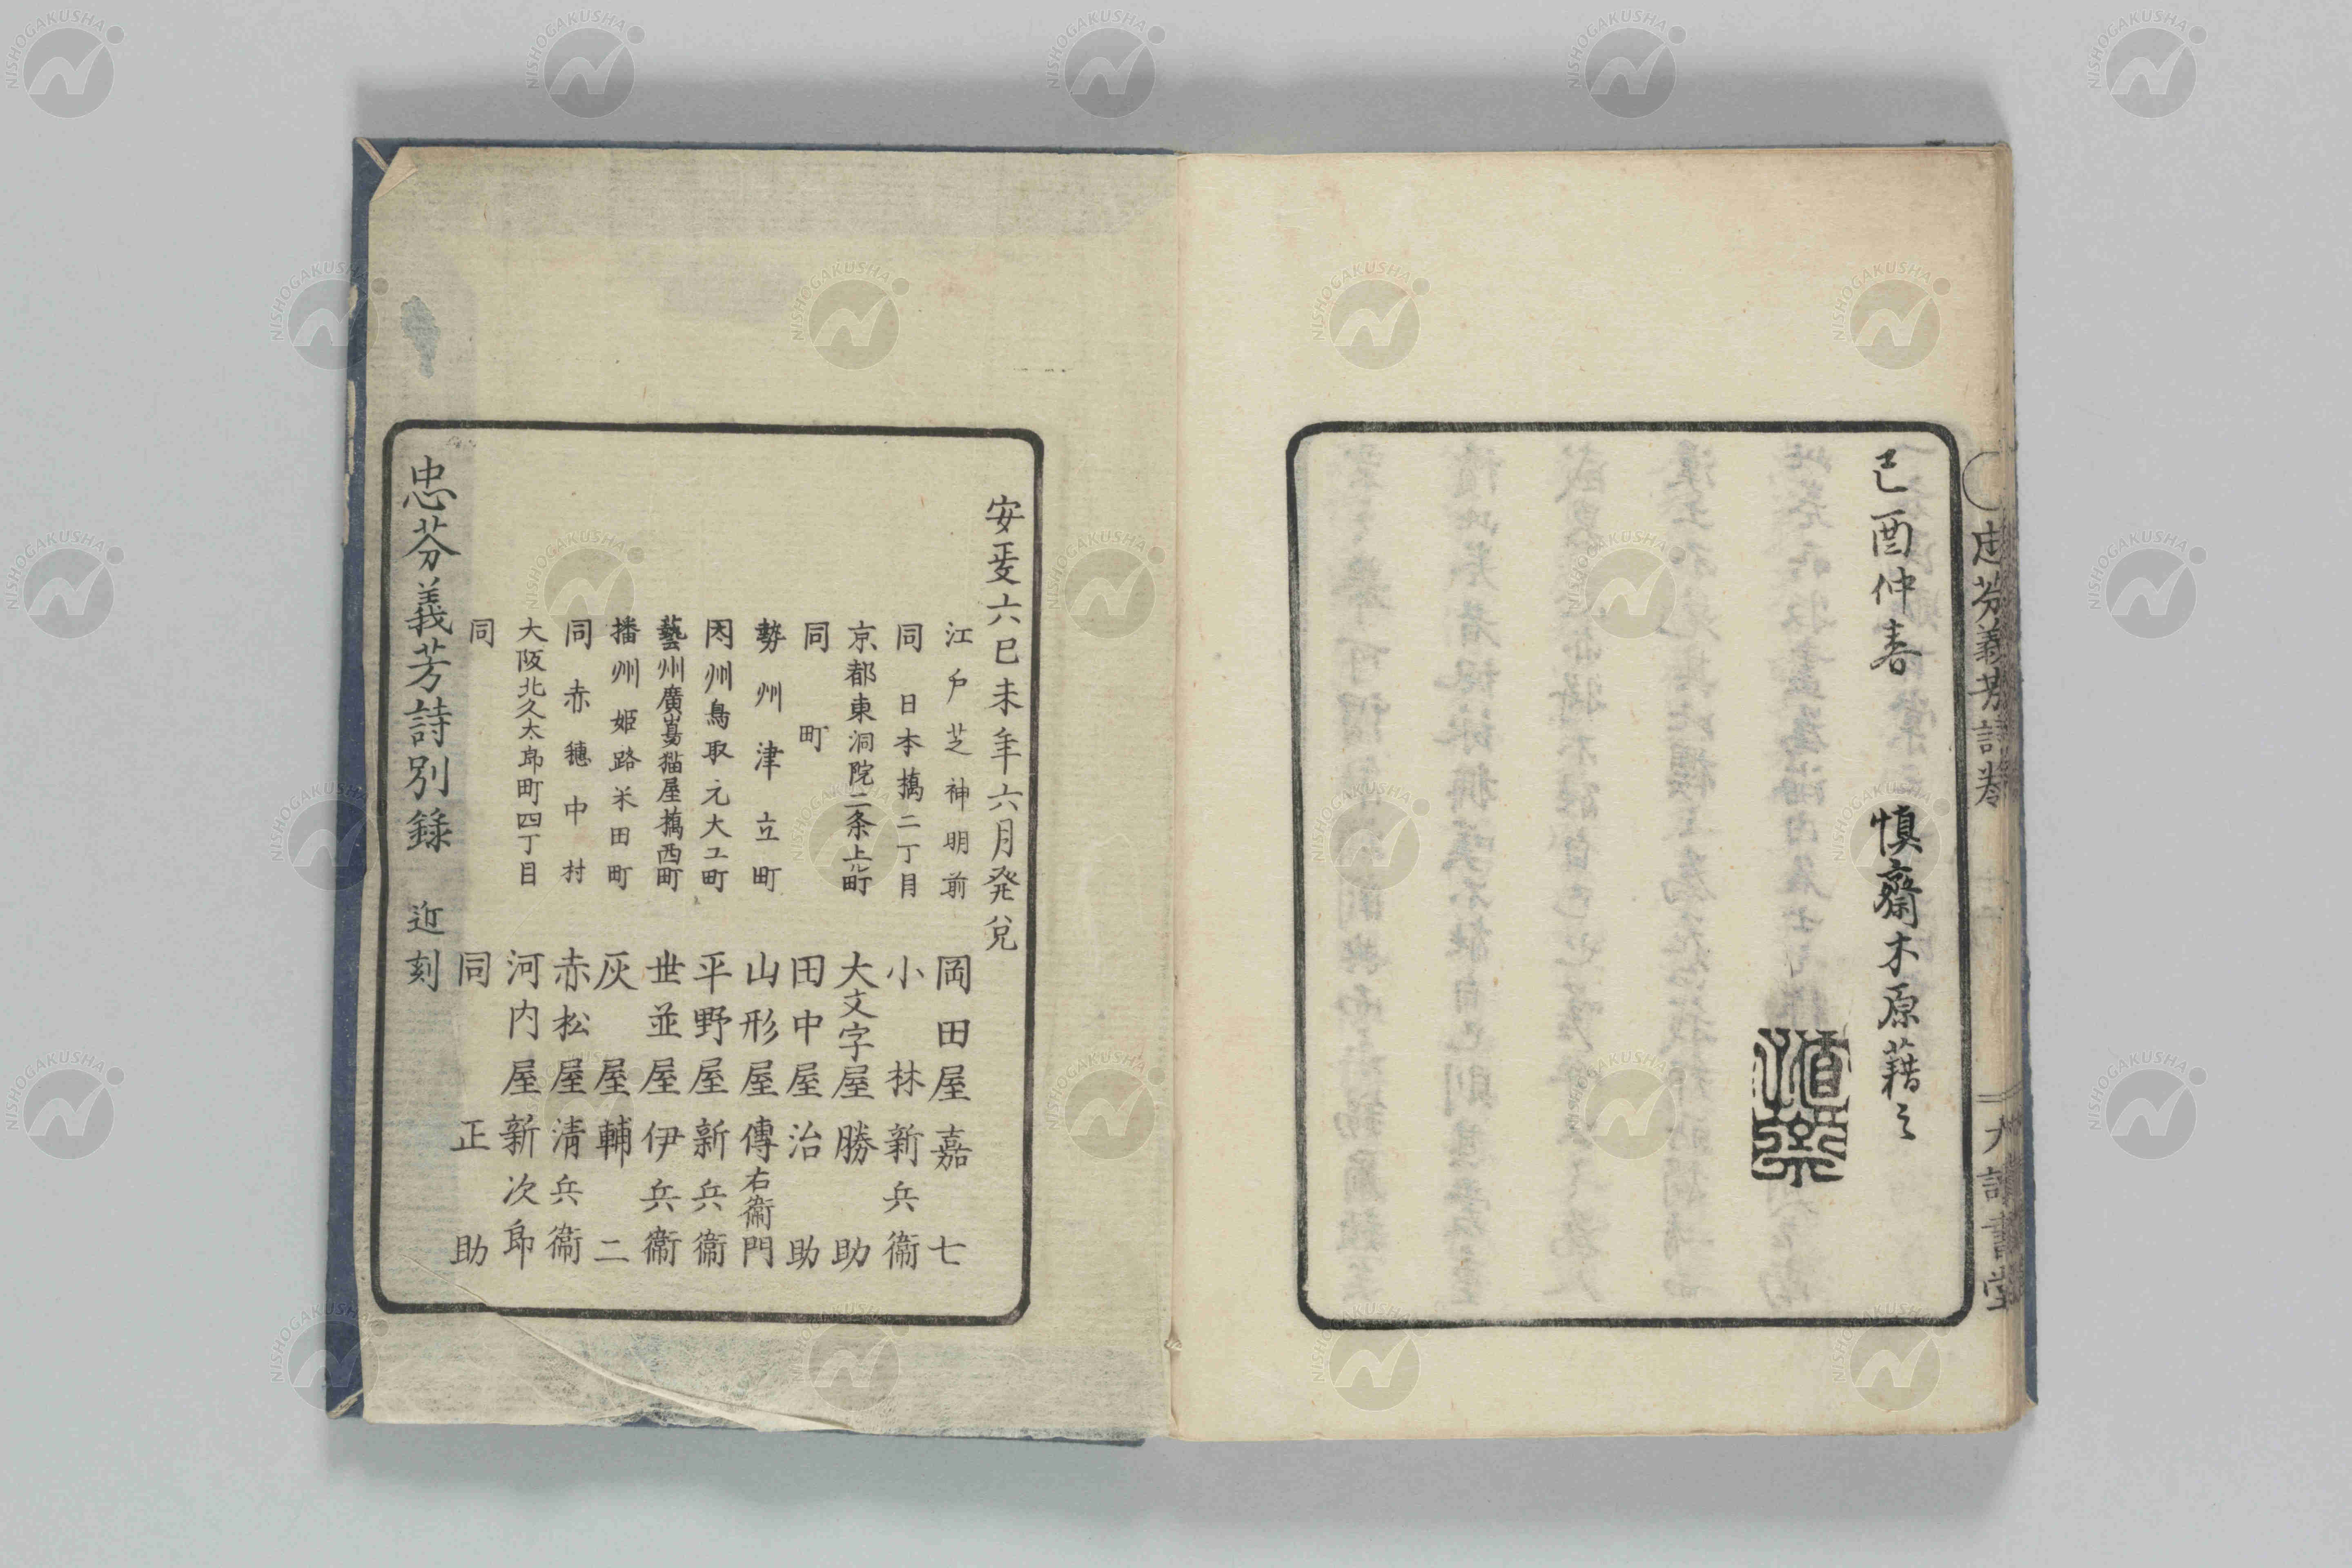 己酉仲春　慎齋木原藉之
忠芬義芳詩巻
大讀書堂
安政六己未年六月発兌
江戸芝神明前　岡田屋嘉七
同日本橋二丁目　小林新兵衞
京都東洞院二条上ル町　大文字屋勝助
同町　田中屋治助
勢州津立町　山形屋傳右衞門
因州鳥取元大工町　平野屋新兵衞
藝州廣島猫屋橋西町　世並屋伊兵衞
播州姫路米田町　灰屋輔二
同赤穂中村　赤松屋清兵衞
大阪北久太郎町四丁目　河内屋新次郎
同　同正助
忠芬義芳詩別錄　近刻
NISHOGAKUSHA